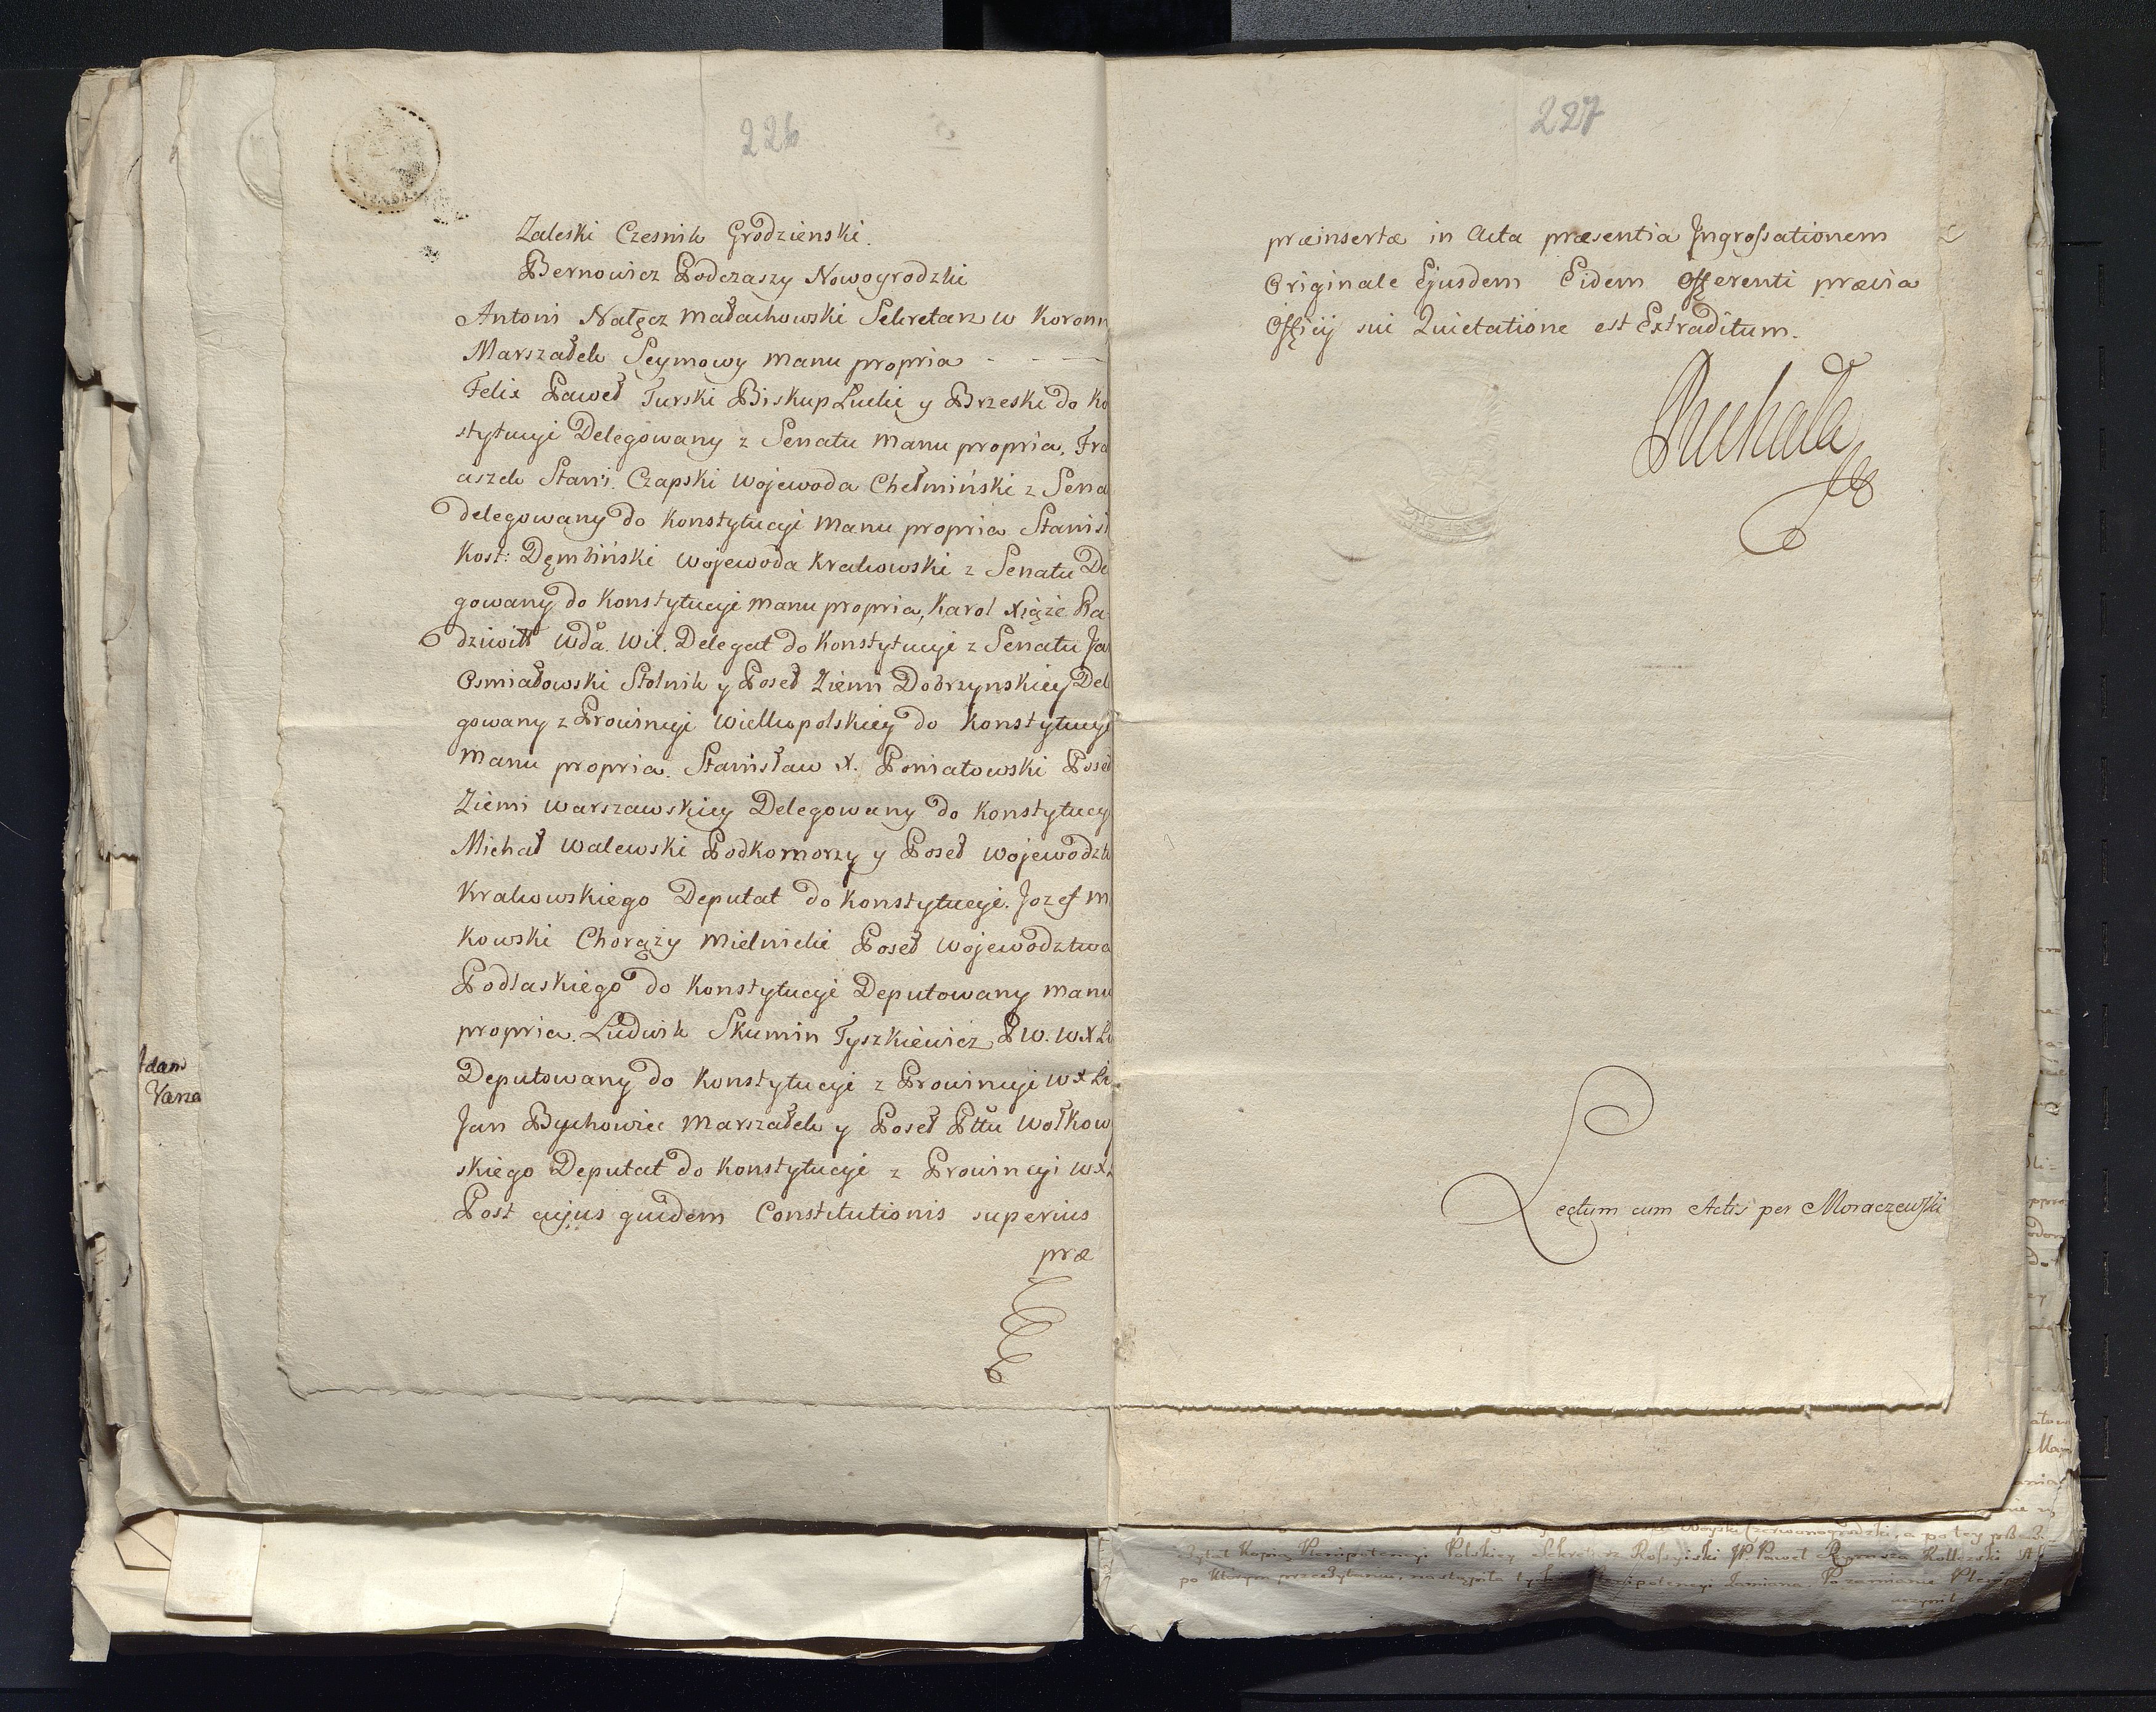 226
Zaleski Czesnik Grodzienski.
Bernowicz Podczaszy Nowogrodzki
Antoni Nałęcz Małachowski Sekretarz W Koronn
Marszałek Seymowy Manu propria - - -
Felix Paweł Turski Biskup Łucki y Brzeski do Ko
stytucyi Delegowany z Senatu Manu propria, Fra
ciszek Stani. Czapski Wojewoda Chełmiński z Sena
delegowany do Konstytucyi Manu propria Stanisł
Kost: Dęmbiński Wojewoda Krakowski z Senatu De
gowany do Konstytucyi Manu propria, Karol Xiąże Ra
dziwiłł Wda. Wil. Delegat do Konstytucyi z Senatu Ja
Osmiałowski Stolnik y Poseł Ziemi Dobrzynskiey Del
gowany z Prowincyi Wielkopolskiey do Konstytucyi
Manu propria. Stanisław X. Poniatowski Poseł
Ziemi Warszawskiey Delegowany do Konstytucy
Michał Walewski Podkomorzy y Poseł Wojewodztw
Krakowskiego Deputat do Konstytucyi. Jozef M
kowski Chorąży Mielnicki Poseł Wojewodztwa
Podlaskiego do Konstytucyi Deputowany Manu
propria. Ludwik Skumin Tyszkiewicz P W. W X Li
Deputowany do Konstytucyi z Prowincyi W X Li
Jan Bychowiec Marszałek y Poseł Pttu Wołkow
skiego Deputat do Konstytucyi z Prowincyi W X.
Post cujus quidem Constitutionis superius
præ
Adam
227
præinsertæ in Acta præsentia Ingrossationem
Originale Ejusdem Eidem Offerenti prævia
Officij sui Quietatione est Extraditum.
Lectum cum Actis per Moraczewski